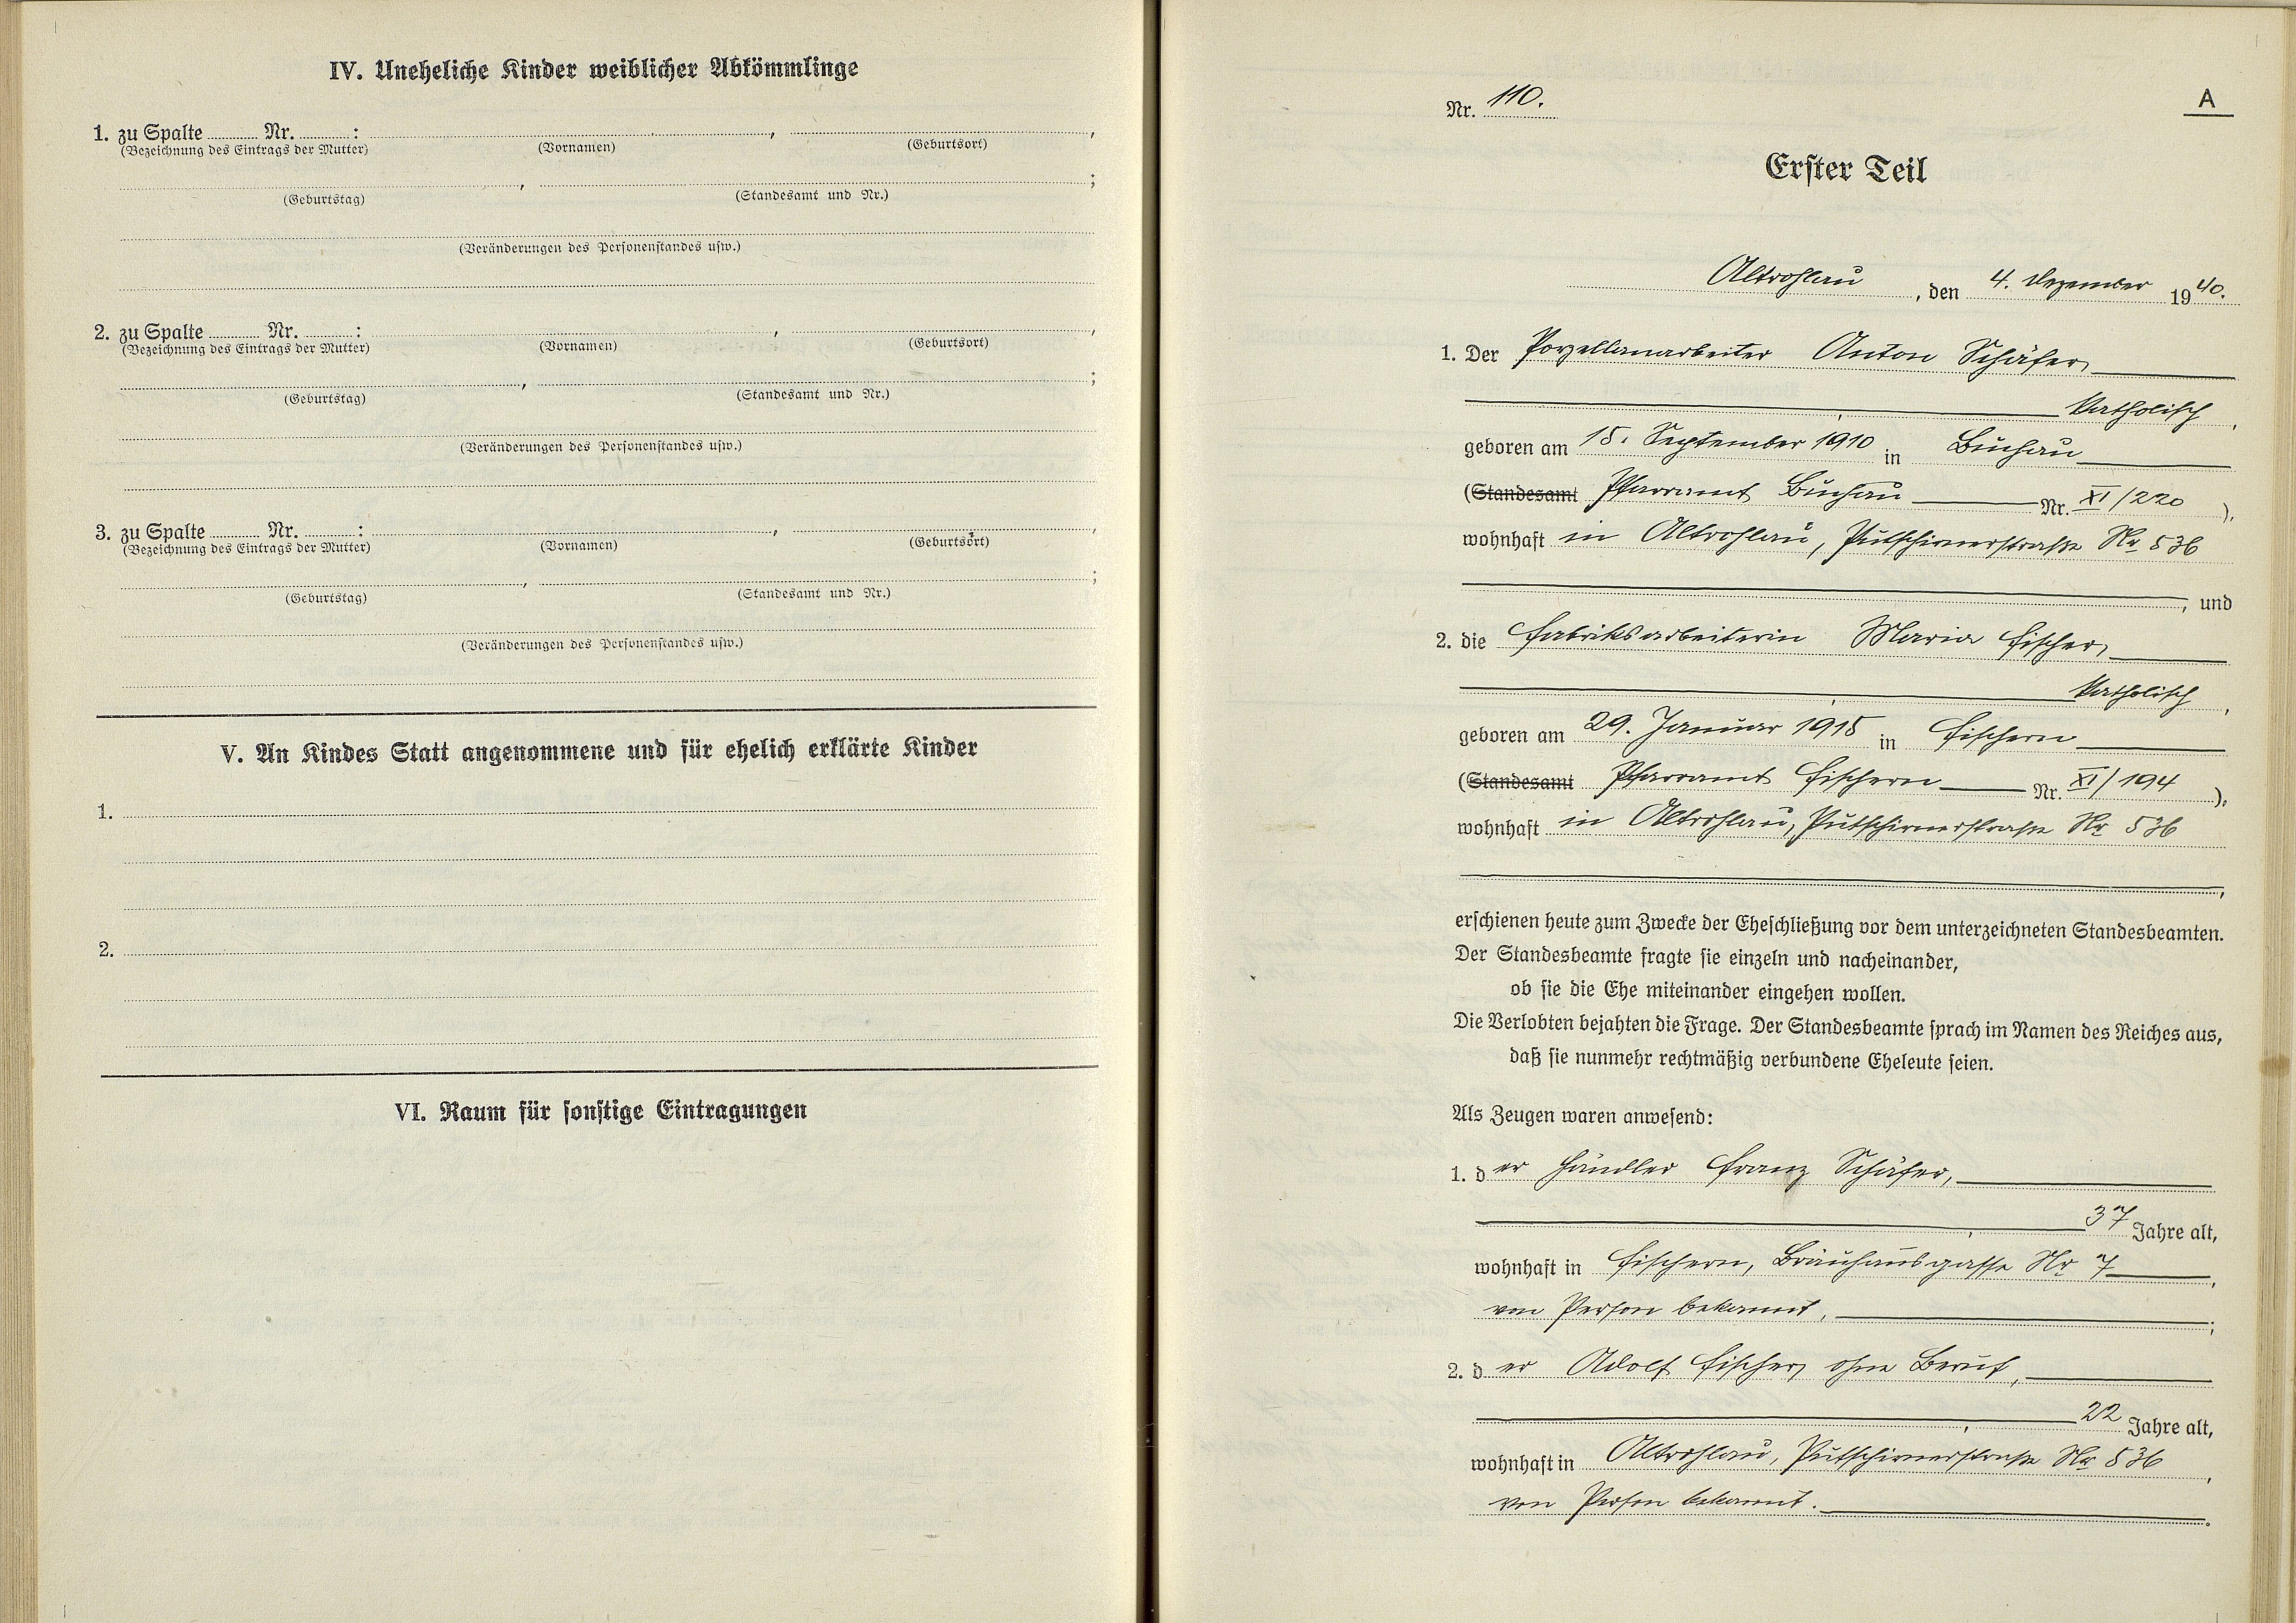 IV. Uneheliche Kinder weiblicher Abkömmlinge
1. zu Spalte ........ Nr. ........ : ........, ........,
(Bezeichnung des Eintrags der Mutter) (Vornamen) (Geburtsort)
........, ........;
(Geburtstag) (Standesamt und Nr.)
(Veränderungen des Personenstandes usw.)
2. zu Spalte ........ Nr. ........ : ........, ........,
(Bezeichnung des Eintrags der Mutter) (Vornamen) (Geburtsort)
........, ........;
(Geburtstag) (Standesamt und Nr.)
(Veränderungen des Personenstandes usw.)
3. zu Spalte ........ Nr. ........ : ........, ........,
(Bezeichnung des Eintrags der Mutter) (Vornamen) (Geburtsort)
........, ........;
(Geburtstag) (Standesamt und Nr.)
(Veränderungen des Personenstandes usw.)
V. An Kindes Statt angenommene und für ehelich erklärte Kinder
1.
2.
VI. Raum für sonstige Eintragungen
Nr. 110.
A
Erster Teil
Altrohlau, den 4. Dezember 1940.
1. Der Porzellanarbeiter Anton Schäfer,
katholisch,
geboren am 15. September 1910 in Buchau
(Standesamt Pfarramt Buchau Nr. XI/220),
wohnhaft in Altrohlau, Putschirnerstraße Nr 536
, und
2. die Fabriksarbeiterin Maria Fischer,
katholisch,
geboren am 29. Januar 1915 in Fischern
(Standesamt Pfarramt Fischern Nr. XI/194),
wohnhaft in Altrohlau, Putschirnerstraße Nr 536
,
erschienen heute zum Zwecke der Eheschließung vor dem unterzeichneten Standesbeamten.
Der Standesbeamte fragte sie einzeln und nacheinander,
ob sie die Ehe miteinander eingehen wollen.
Die Verlobten bejahten die Frage. Der Standesbeamte sprach im Namen des Reiches aus,
daß sie nunmehr rechtmäßig verbundene Eheleute seien.
Als Zeugen waren anwesend:
1. der Händler Franz Schäfer,
37 Jahre alt,
wohnhaft in Fischern, Bräuhausgasse Nr 7,
von Person bekannt,;
2. der Adolf Fischer, ohne Beruf,
22 Jahre alt,
wohnhaft in Altrohlau, Putschirnerstraße Nr 536,
von Person bekannt.